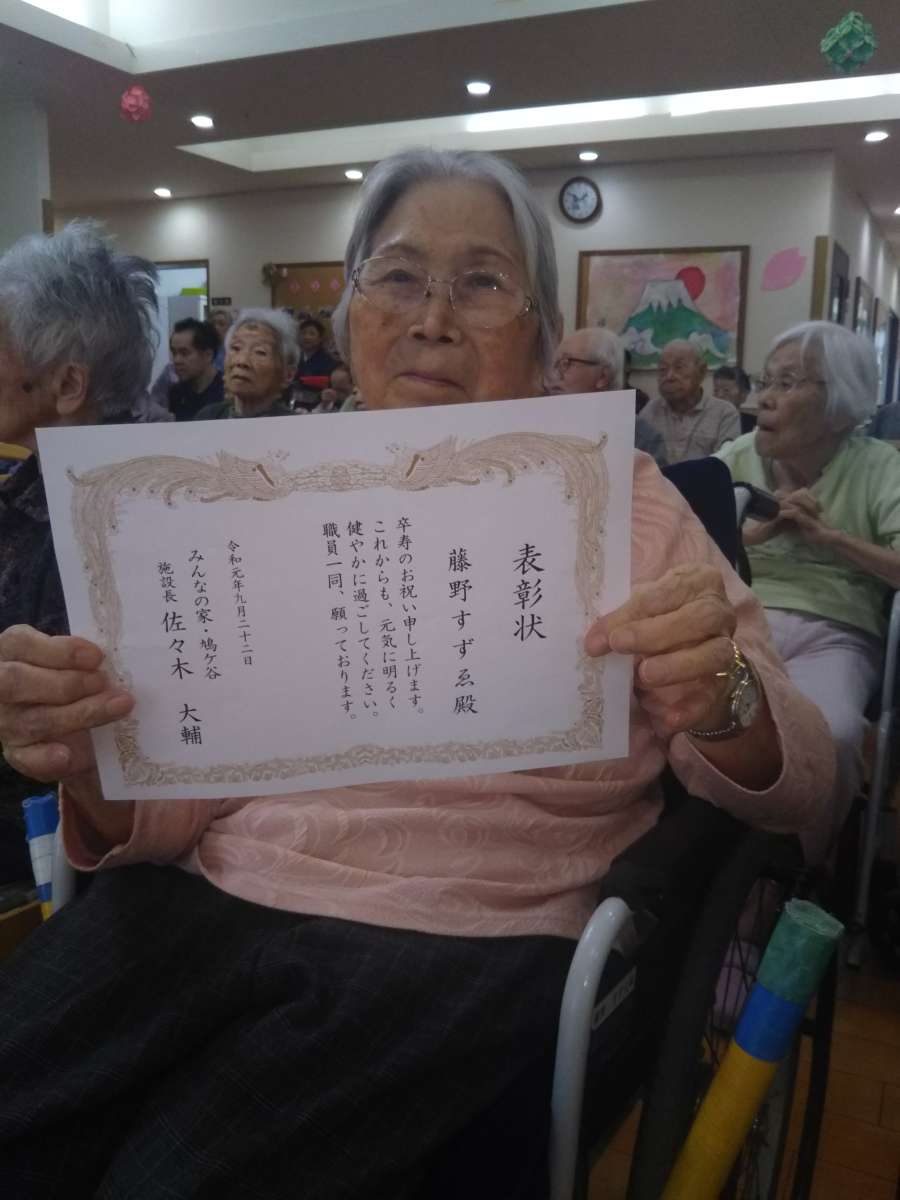 表彰状
藤野すずゑ殿
卒寿のお祝い申し上げます。
これからも、元気に明るく
健やかに過ごしてください。
職員一同、願っております。
令和元年九月二十二日
みんなの家・鳩ケ谷
施設長 佐々木 大輔